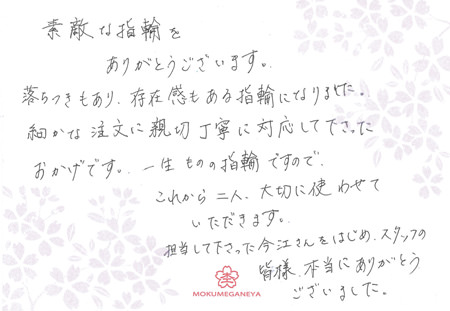 素敵な指輪を
ありがとうございます。
落ちつきもあり、存在感もある指輪になりました。
細かな注文に親切丁寧に対応して下さった
おかげです。一生ものの指輪ですので、
これから二人、大切に使わせて
いただきます。
担当して下さった今江さんをはじめ、スタッフの
皆様、本当にありがとう
ございました。
MOKUMEGANEYA